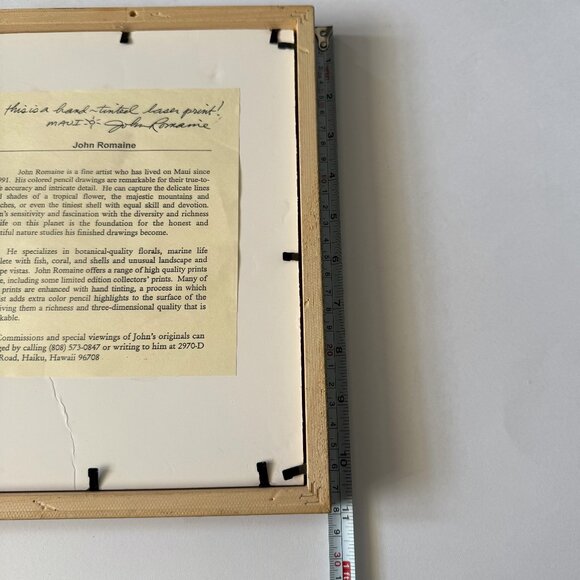 this is a hand-tinted laser print!
MAUI John Romaine
John Romaine
John Romaine is a fine artist who has lived on Maui since
991. His colored pencil drawings are remarkable for their true-to-
accuracy and intricate detail. He can capture the delicate lines
shades of a tropical flower, the majestic mountains and
ches, or even the tiniest shell with equal skill and devotion.
n's sensitivity and fascination with the diversity and richness
life on this planet is the foundation for the honest and
tiful nature studies his finished drawings become.
He specializes in botanical-quality florals, marine life
lete with fish, coral, and shells and unusual landscape and
pe vistas. John Romaine offers a range of high quality prints
e, including some limited edition collectors' prints. Many of
prints are enhanced with hand tinting, a process in which
ist adds extra color pencil highlights to the surface of the
iving them a richness and three-dimensional quality that is
kable.
Commissions and special viewings of John's originals can
ged by calling (808) 573-0847 or writing to him at 2970-D
Road, Haiku, Hawaii 96708